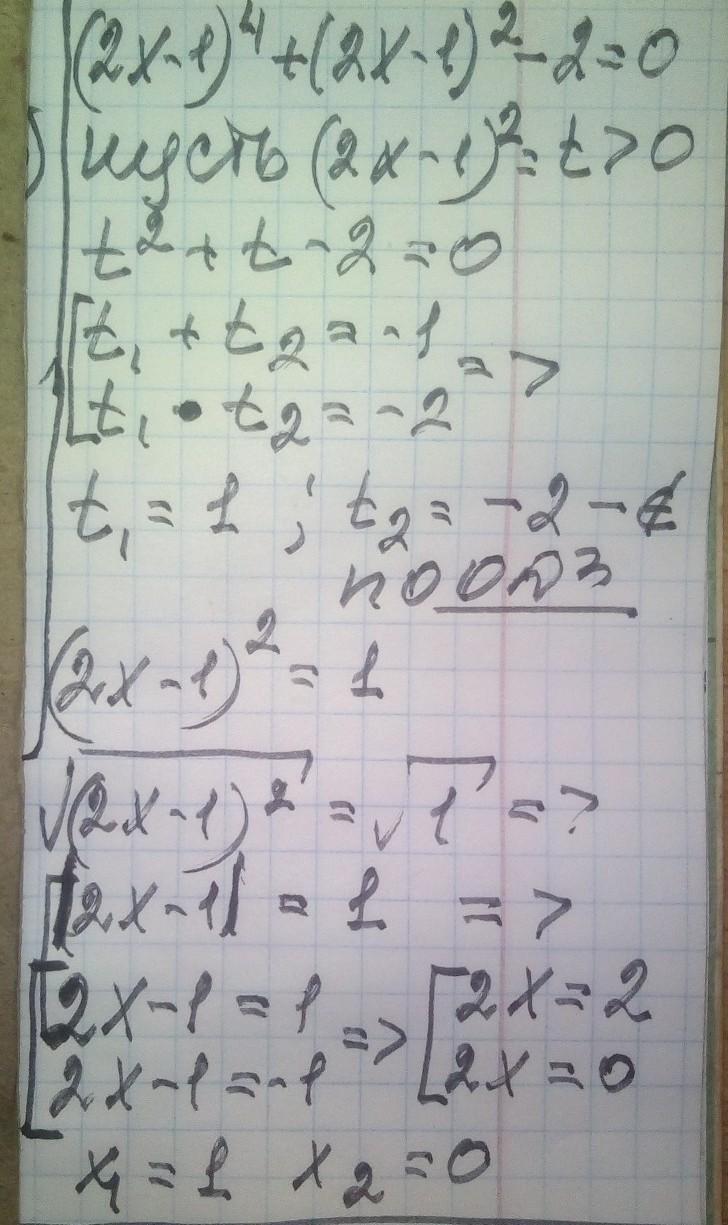 (2x-1)⁴+(2x-1)²-2=0
) пусть (2x-1)²=t>0
t²+t-2=0
[t₁+t₂=-1
[t₁•t₂=-2 =>
t₁=1; t₂=-2-∉
по ОДЗ
(2x-1)²=1
√(2x-1)²=√1 =>
[|2x-1|=1 =>
[2x-1=1 => [2x=2
[2x-1=-1 [2x=0
x₁=1 x₂=0